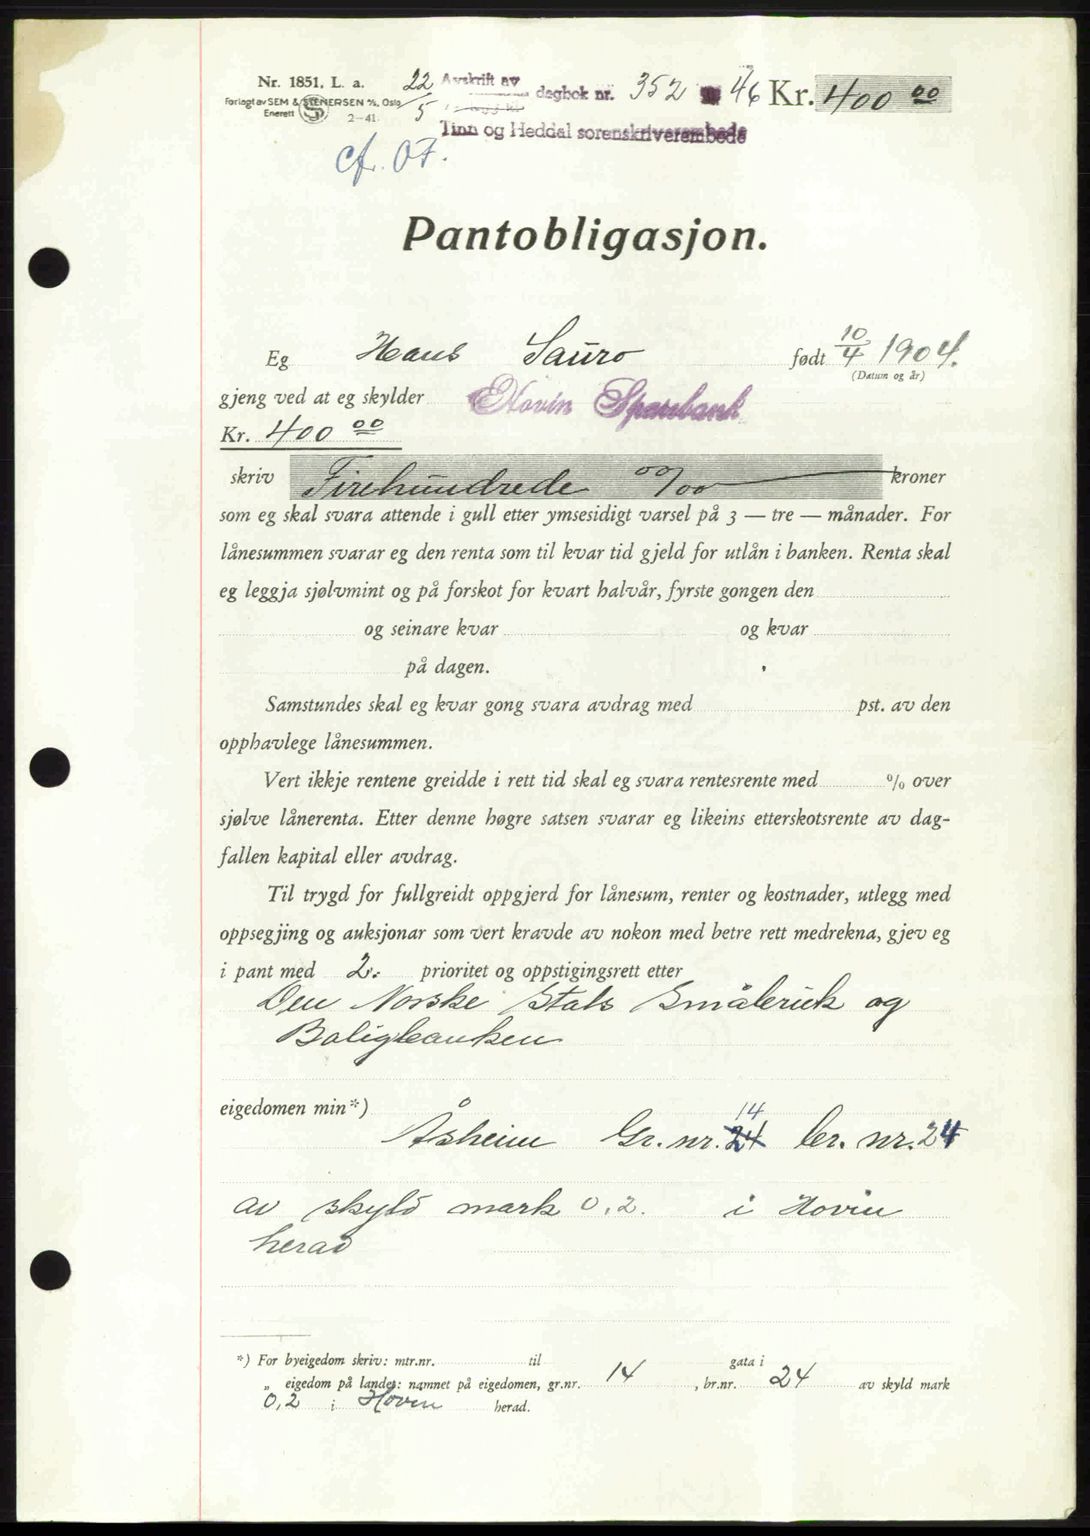 Nr. 1851. L. a.
Forlagt av SEM & STENERSEN A/S, Oslo
Enerett
2-41.
22/5
Avskrift av
dagbok nr. 352 46
Kr. 400 00
Tinn og Heddal sorenskriverembede
cf. 07.
Pantobligasjon.
Eg Hans Sauro født 10/4 1904.
(Datum og år)
gjeng ved at eg skylder Hovin Sparebank
Kr. 400 00
skriv Firehundrede 00/00 kroner
som eg skal svara attende i gull etter ymsesidigt varsel på 3 — tre — månader. For
lånesummen svarar eg den renta som til kvar tid gjeld for utlån i banken. Renta skal
eg leggja sjølvmint og på forskot for kvart halvår, fyrste gongen den
og seinare kvar og kvar
på dagen.
Samstundes skal eg kvar gong svara avdrag med pst. av den
opphavlege lånesummen.
Vert ikkje rentene greidde i rett tid skal eg svara rentesrente med % over
sjølve lånerenta. Etter denne høgre satsen svarar eg likeins etterskotsrente av dag-
fallen kapital eller avdrag.
Til trygd for fullgreidt oppgjerd for lånesum, renter og kostnader, utlegg med
oppsegjing og auksjonar som vert kravde av nokon med betre rett medrekna, gjev eg
i pant med 2. prioritet og oppstigingsrett etter
Den Norske Stats Småbruk og
Boligbanken
eigedomen min*)
14
Åsheim Gr. nr. 24 br. nr. 24
av skyld mark 0,2. i Hovin
herad
*) For byeigedom skriv: mtr.nr. til gata i
„ eigedom på landet: namnet på eigedomen, gr.nr. 14, br.nr. 24 av skyld mark
0,2 i Hovin herad.